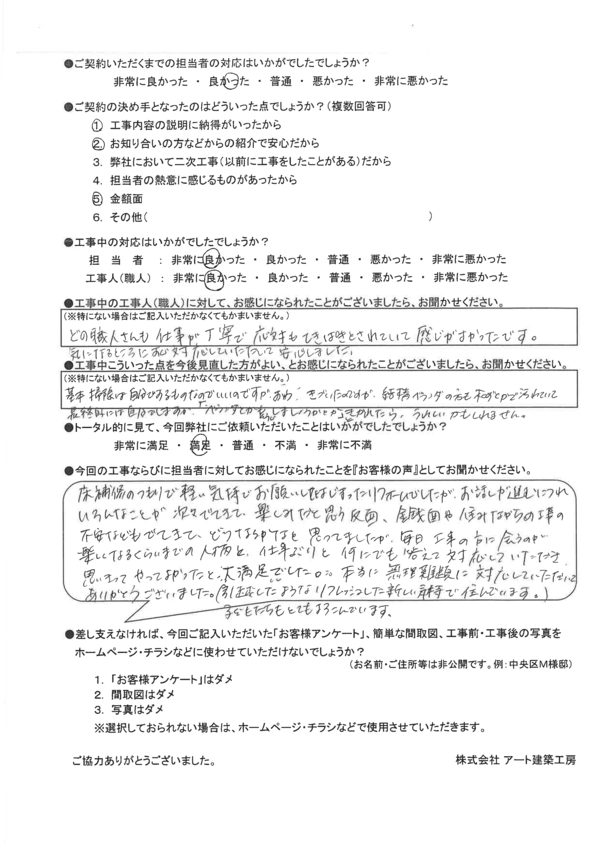 ●ご契約いただくまでの担当者の対応はいかがでしたでしょうか？
非常に良かった ・ 良かった ・ 普通 ・ 悪かった ・ 非常に悪かった
●ご契約の決め手となったのはどういった点でしょうか？(複数回答可)
1. 工事内容の説明に納得がいったから
2. お知り合いの方などからの紹介で安心だから
3. 弊社において二次工事(以前に工事をしたことがある)だから
4. 担当者の熱意に感じるものがあったから
5. 金額面
6. その他( )
●工事中の対応はいかがでしたでしょうか？
担 当 者 : 非常に良かった ・ 良かった ・ 普通 ・ 悪かった ・ 非常に悪かった
工事人(職人) : 非常に良かった ・ 良かった ・ 普通 ・ 悪かった ・ 非常に悪かった
●工事中の工事人(職人)に対して、お感じになられたことがございましたら、お聞かせください。
(※特にない場合はご記入いただかなくてもかまいません。)
どの職人さんも 仕事が丁寧で 応対もてきぱきとされていて 感じがよかったです。
気になるところにも対応していただいて 安心しました。
●工事中こういった点を今後見直した方がよい、とお感じになられたことがございましたら、お聞かせください。
(※特にない場合はご記入いただかなくてもかまいません。)
基本 掃除は自分でするものなのでいいのですが、
うれしいかもしれません。
●トータル的に見て、今回弊社にご依頼いただいたことはいかがでしたでしょうか？
非常に満足 ・ 満足 ・ 普通 ・ 不満 ・ 非常に不満
●今回の工事ならびに担当者に対してお感じになられたことを『お客様の声』としてお聞かせください。
床補修のつもりで軽い気持ちでお願いしはじまったリフォームでしたが、お話しが進むにつれ
いろんなことが 次々でてきて、楽しみだと思う反面、金銭面や 住みながらの工事の
不安などもでてきて、どうなるかなと 思ってましたが、毎日 工事の方に会うのが
楽しくなるくらいまでの 人柄と、仕事ぶりと 何にでも 答えて 対応していただき、
思いきって やってよかったと、大満足でした。 本当に 無理難題に 対応していただいて
ありがとうございました。(引越したようなリフレッシュした新しい気持で住んでいます。)
子どもたちもとてもよろこんでいます。
●差し支えなければ、今回ご記入いただいた「お客様アンケート」、簡単な間取図、工事前・工事後の写真を
ホームページ・チラシなどに使わせていただけないでしょうか？
(お名前・ご住所等は非公開です。例: 中央区M様邸)
1. 「お客様アンケート」はダメ
2. 間取図はダメ
3. 写真はダメ
※選択しておられない場合は、ホームページ・チラシなどで使用させていただきます。
ご協力ありがとうございました。
株式会社 アート建築工房